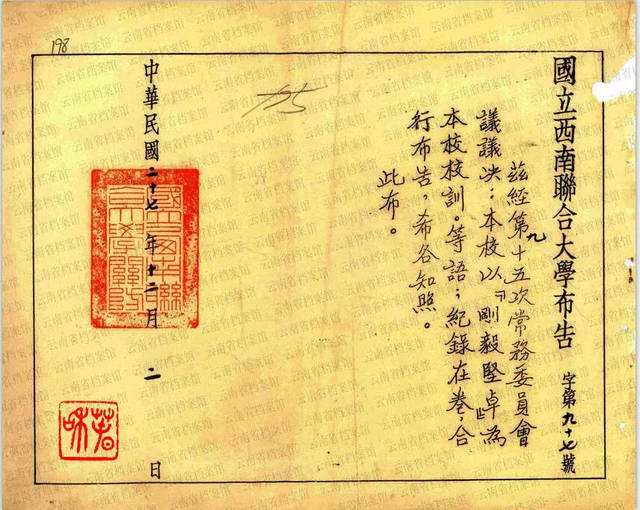 198
國立西南聯合大學布告 字第九十七號
茲經第九十五次常務委員會
議議決：本校以『剛毅堅卓』為
本校校訓。等語；紀錄在卷，合
行布告，希各知照。
此布。
中華民國二十七年十二月二日
國立西南聯合大學關防
云南省档案馆